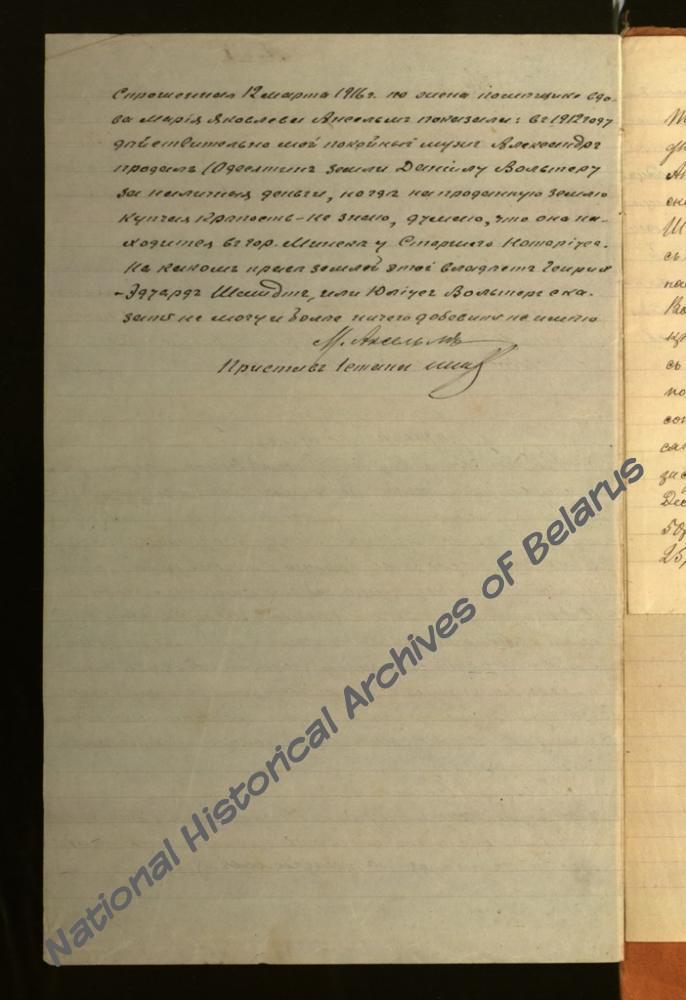 Спрошенная 12 марта 1916 г. по жена помещика вдо-
ва Марія Яковлева Ансельмъ показала: въ 1912 году
дѣйствительно мой покойный мужъ Александръ
продалъ 10 десятинъ земли Даніилу Вольтеру
за наличныя деньги, но гдѣ на проданную землю
купчая крѣпость – не знаю, думаю, что она на-
ходится въ гор. Минскѣ у Старшаго Нотаріуса.
На какомъ правѣ землей этой владѣетъ Генрих
-Эдуардъ Шмидтъ, или Юліусъ Вольтеръ ска-
зать не могу и болѣе ничего добавить не имѣю
М. Ансельмъ
Приставъ 1 стана
National Historical Archives of Belarus